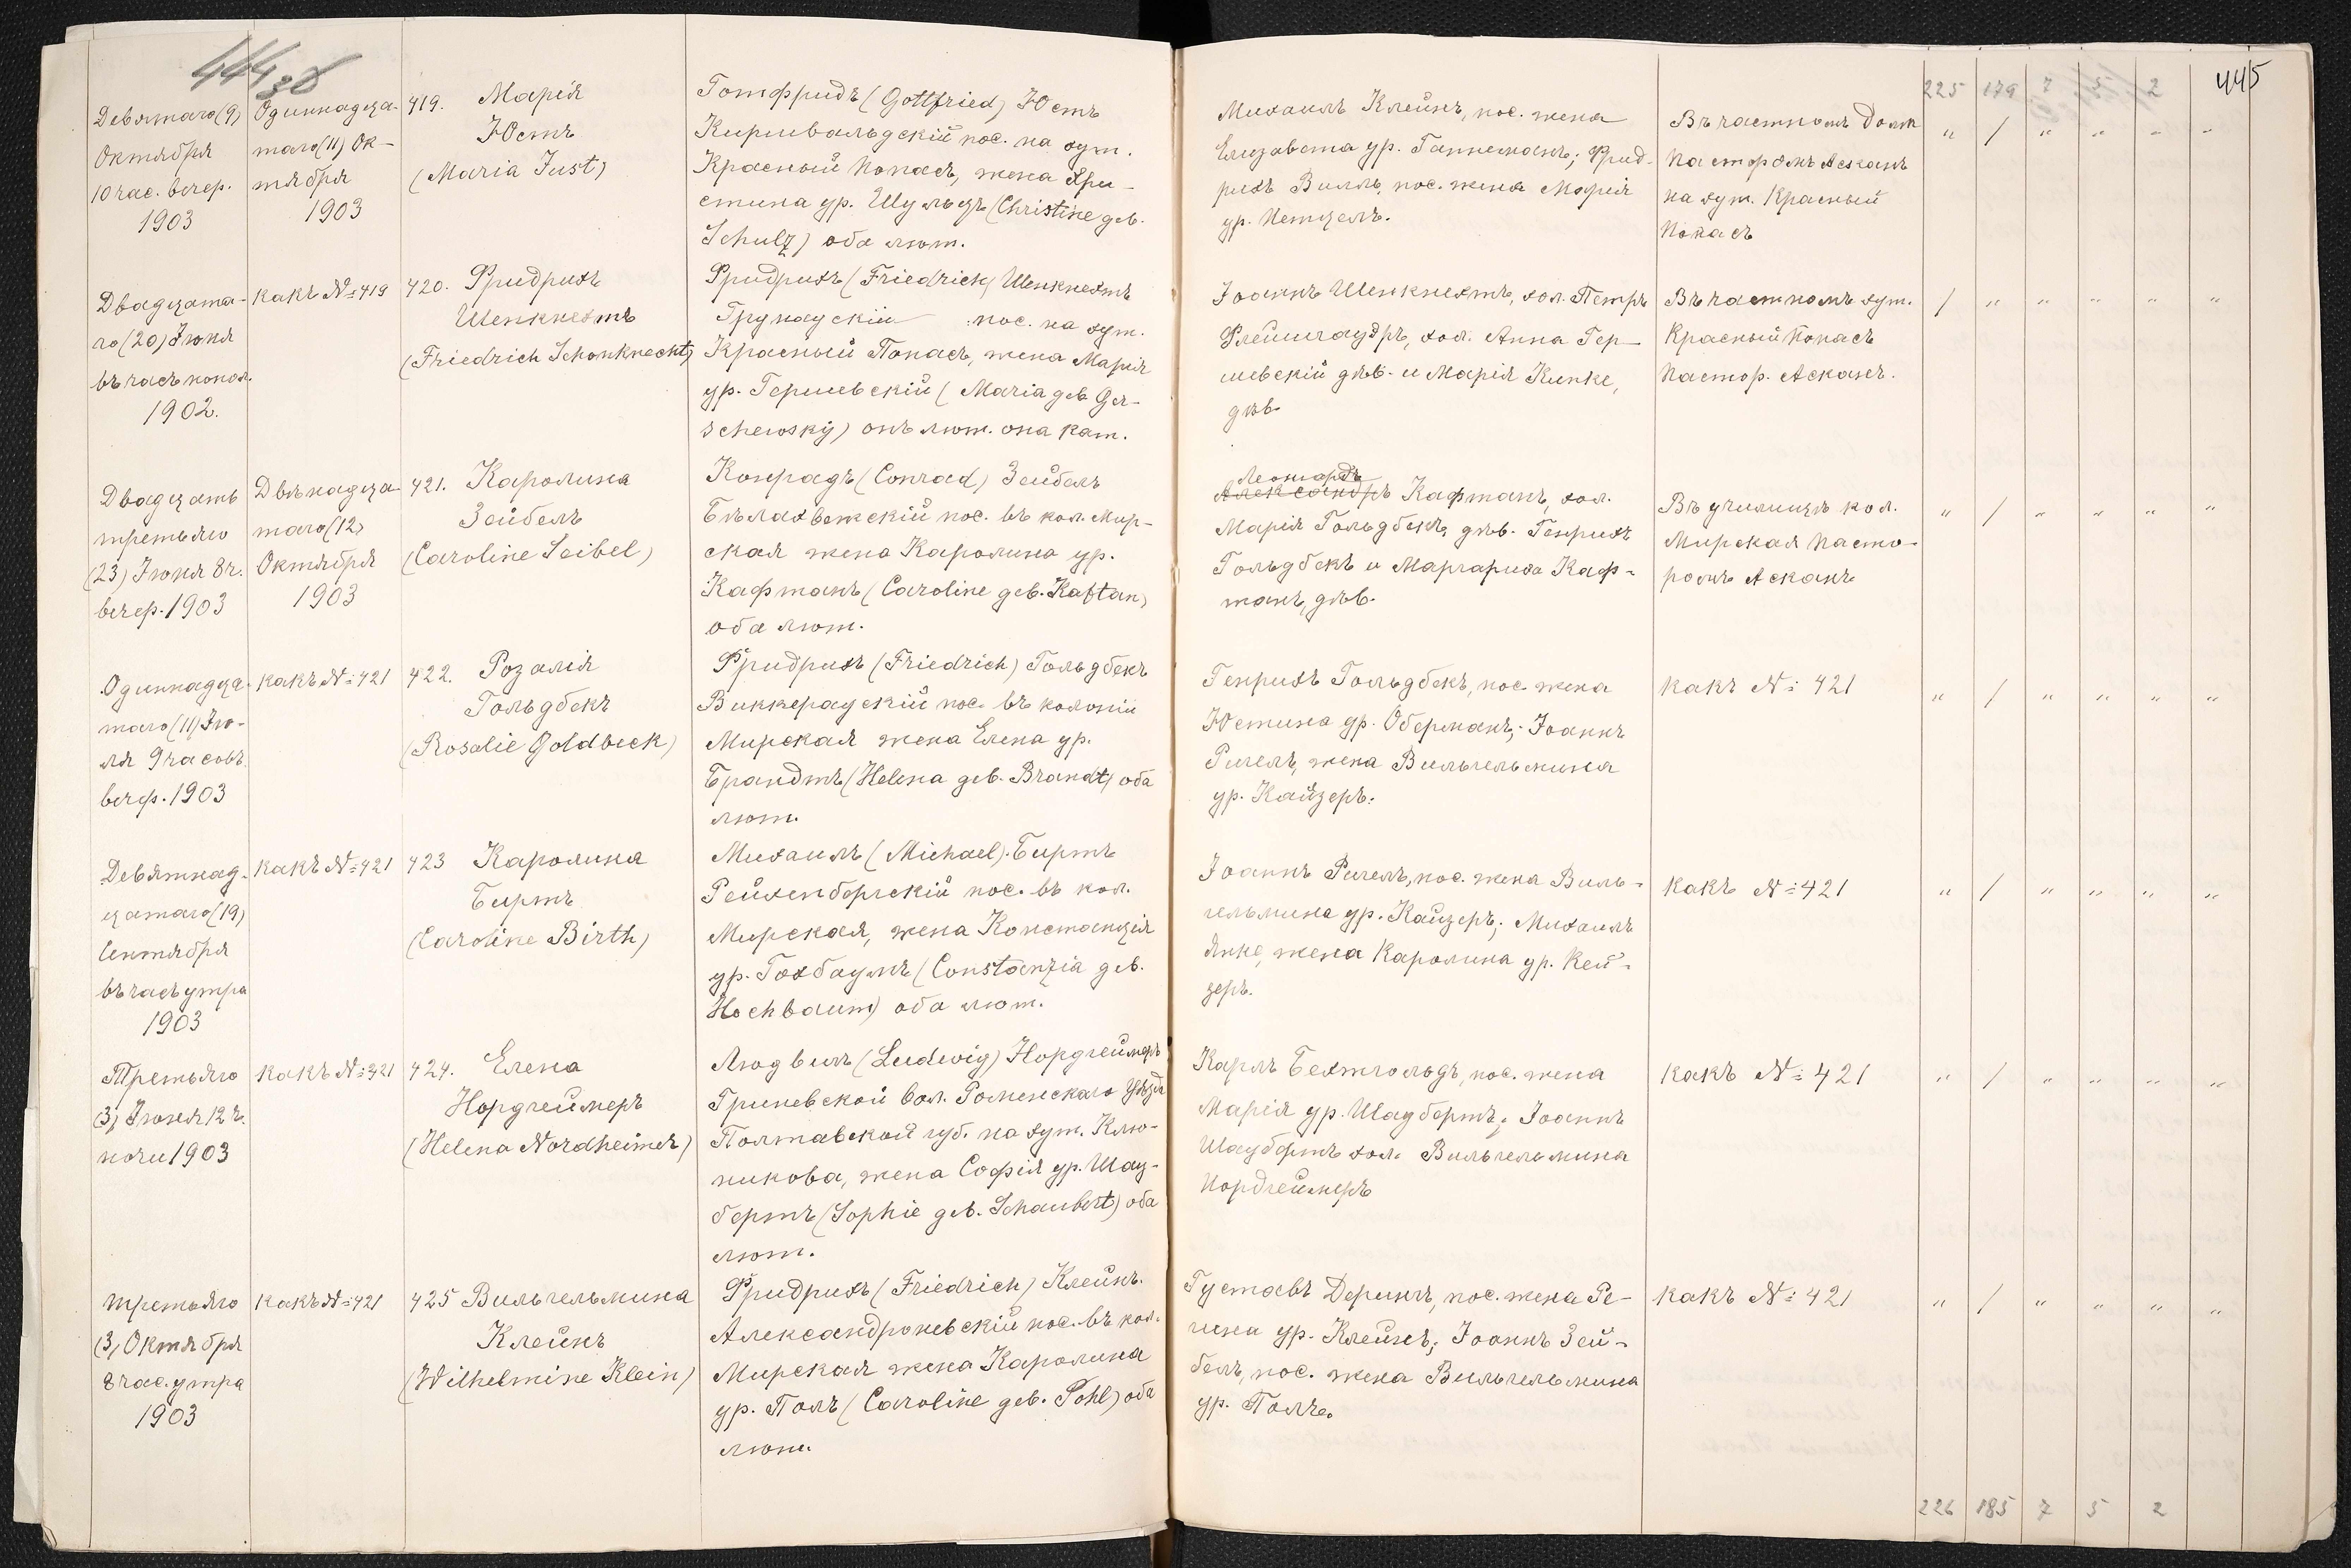 444
445
225 179 7 5 2
Девятаго (9)
Октября
10 час. вечер.
1903
Одиннадца-
таго (11) Ок-
тября
1903
419. Марія
Юстъ
(Maria Just)
Готфридъ (Gottfried) Юстъ
Киршвальдскій пос. на хут.
Красный Попасъ, жена Хри-
стина ур. Шульцъ (Christine geb.
Schulz) оба лют.
Михаилъ Клейнъ, пос. жена
Елизавета ур. Ганнеманъ; Фрид-
рихъ Вилль, пос. жена Марія
ур. Петцель.
Въ частномъ домѣ
Пасторомъ Асканъ
на хут. Красный
Попасъ
" / " " " "
Двадцата-
го (20) Іюня
въ часъ попол.
1902.
какъ № 419
420. Фридрихъ
Шенкнехтъ
(Friedrich Schönknecht)
Фридрихъ (Friedrich) Шенкнехтъ
Грунаускій пос. на хут.
Красный Попасъ, жена Марія
ур. Гершевскій (Maria geb Ger-
schewsky) онъ лют. она кат.
Іоаннъ Шенкнехтъ, хол. Петръ
Флейшгаудръ, хол. Анна Гер-
шевскій дѣв. и Марія Кипке,
дѣв.
Въ частномъ хут.
Красный Попасъ
Пастор. Асканъ.
/ " " " " "
Двадцать
третьяго
(23) Іюня 8 ч.
вечер. 1903
Двѣнадца
таго (12)
Октября
1903
421. Каролина
Зейбель
(Caroline Seibel)
Конрадъ (Conrad) Зейбель
Бѣлахвежскій пос. въ кол. Мир-
ская жена Каролина ур.
Кафтанъ (Caroline geb. Kaftan)
оба лют.
Леонардъ
Александръ Кафтанъ, хол.
Марія Гольдбекъ, дѣв. Генрихъ
Гольдбекъ и Маргарита Каф-
танъ, дѣв.
Въ училищѣ кол.
Мирская Пасто-
ромъ Асканъ
" / " " " "
Одиннадца-
таго (11) Ію-
ля 9 часовъ
вечер. 1903
какъ № 421
422. Розалія
Гольдбекъ
(Rosalie Goldbeck)
Фридрихъ (Friedrich) Гольдбекъ
Виккераускій пос. въ колоніи
Мирская жена Елена ур.
Брандтъ (Helena geb. Brandt) оба
лют.
Генрихъ Гольдбекъ, пос. жена
Юстина ур. Оберманъ; Іоаннъ
Ригель, жена Вильгельмина
ур. Кайзеръ.
какъ № 421
" / " " " "
Девятнад-
цатаго (19)
Сентября
въ часъ утра
1903
какъ № 421
423 Каролина
Биртъ
(Caroline Birth)
Михаилъ (Michael) Биртъ
Рейхенбергскій пос. въ кол.
Мирская, жена Констанція
ур. Гохбаумъ (Constanzia geb.
Hochbaum) оба лют.
Іоаннъ Ригель, пос. жена Виль-
гельмина ур. Кайзеръ; Михаилъ
Янке, жена Каролина ур. Кей-
зеръ.
какъ № 421
" / " " " "
Третьяго
(3) Іюня 12 ч.
ночи 1903
какъ № 421
424. Елена
Нордгеймеръ
(Helena Nordheimer)
Людвигъ (Ludwig) Нордгеймеръ
Гриневской вол. Роменскаго Уѣзда
Полтавской губ. на хут. Клю-
никова, жена Софія ур. Шау-
бертъ (Sophie geb. Schaubert) оба
лют.
Карлъ Бехтгольдъ, пос. жена
Марія ур. Шаубертъ; Іоаннъ
Шаубертъ хол. Вильгельмина
Нордгеймеръ
какъ № 421
" / " " " "
третьяго
(3) Октября
8 час. утра
1903
какъ № 421
425 Вильгельмина
Клейнъ
(Wilhelmine Klein)
Фридрихъ (Friedrich) Клейнъ.
Александроневскій пос. въ кол.
Мирская жена Каролина
ур. Поль (Caroline geb. Pohl) оба
лют.
Густавъ Дерингъ, пос. жена Ре-
гина ур. Клейнъ; Іоаннъ Зей-
бель, пос. жена Вильгельмина
ур. Поль.
какъ № 421
" / " " " "
226 185 7 5 2